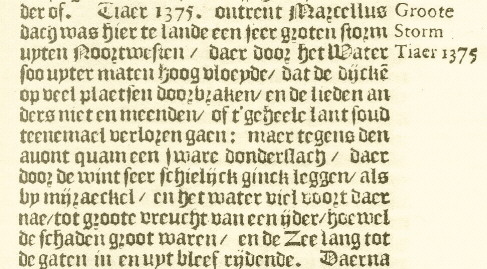 der of. Tiaer 1375. ontrent Marcellus
dach was hier te lande een seer groten storm
uyten Noortwesten / daer door het Water
soo uyter maten hoog vloeyde / dat de dijckē
op veel plaetsen doorbraken / en de lieden an
ders niet en meenden / of t'geheele lant soud
teenemael verloren gaen: maer tegens den
avont quam een sware donderslach / daer
door de wint seer schielijck ginck leggen / als
by mijraeckel / en het water viel voort daer
nae / tot groote vreucht van een yder / hoewel
de schaden groot waren / en de Zee lang tot
de gaten in en uyt bleef rijdende. Daerna
Groote
Storm
Tiaer 1375